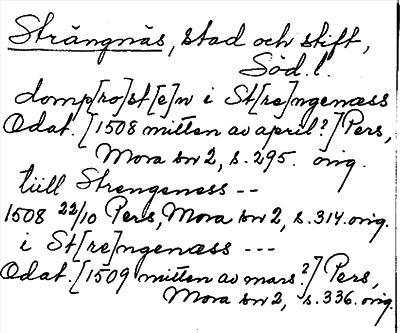 Strängnäs, stad och stift,
Söd. l.
domp[ro]st[e]n i St[re]ngenæss
Odat. [1508 mitten av april?] Pers,
Mora sv 2, s. 295. orig.
tiill Strengeness --
1508 22/10 Pers, Mora sv 2, s. 314. orig.
i St[re]ngenæss ---
Odat. [1509 mitten av mars?] Pers,
Mora sv 2, s. 336. orig.